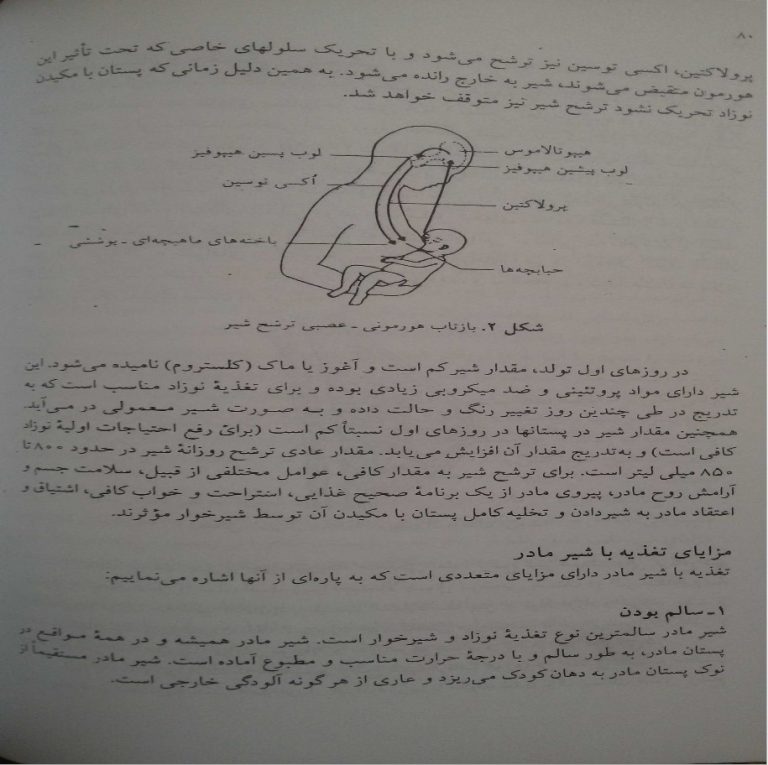 ۸۰
پرولاکتین، اکسی توسین نیز ترشح می‌شود و با تحریک سلولهای خاصی که تحت تأثیر این
هورمون منقبض می‌شوند، شیر به خارج رانده می‌شود. به همین دلیل زمانی که پستان با مکیدن
نوزاد تحریک نشود ترشح شیر نیز متوقف خواهد شد.
هیپوتالاموس
لوب پسین هیپوفیز
لوب پیشین هیپوفیز
اکسی توسین
پرولاکتین
یاخته‌های ماهیچه‌ای ـ پوششی
حبابچه‌ها
شکل ۲. بازتاب هورمونی ـ عصبی ترشح شیر
در روزهای اول تولد، مقدار شیر کم است و آغوز یا ماک (کلستروم) نامیده می‌شود. این
شیر دارای مواد پروتئینی و ضد میکروبی زیادی بوده و برای تغذیهٔ نوزاد مناسب است که به
تدریج در طی چندین روز تغییر رنگ و حالت داده و به صورت شیر معمولی در می‌آید.
همچنین مقدار شیر در پستانها در روزهای اول نسبتاً کم است (برای رفع احتیاجات اولیهٔ نوزاد
کافی است) و به‌تدریج مقدار آن افزایش می‌یابد. مقدار عادی ترشح روزانهٔ شیر در حدود ۸۰۰ تا
۸۵۰ میلی لیتر است. برای ترشح شیر به مقدار کافی، عوامل مختلفی از قبیل، سلامت جسم و
آرامش روح مادر، پیروی مادر از یک برنامهٔ صحیح غذایی، استراحت و خواب کافی، اشتیاق و
اعتقاد مادر به شیردادن و تخلیه کامل پستان با مکیدن آن توسط شیرخوار مؤثرند.
مزایای تغذیه با شیر مادر
تغذیه با شیر مادر دارای مزایای متعددی است که به پاره‌ای از آنها اشاره می‌نماییم:
۱ـ سالم بودن
شیر مادر سالمترین نوع تغذیهٔ نوزاد و شیرخوار است. شیر مادر همیشه و در همهٔ مواقع در
پستان مادر، به طور سالم و با درجهٔ حرارت مناسب و مطبوع آماده است. شیر مادر مستقیماً از
نوک پستان مادر به دهان کودک می‌ریزد و عاری از هر گونه آلودگی خارجی است.